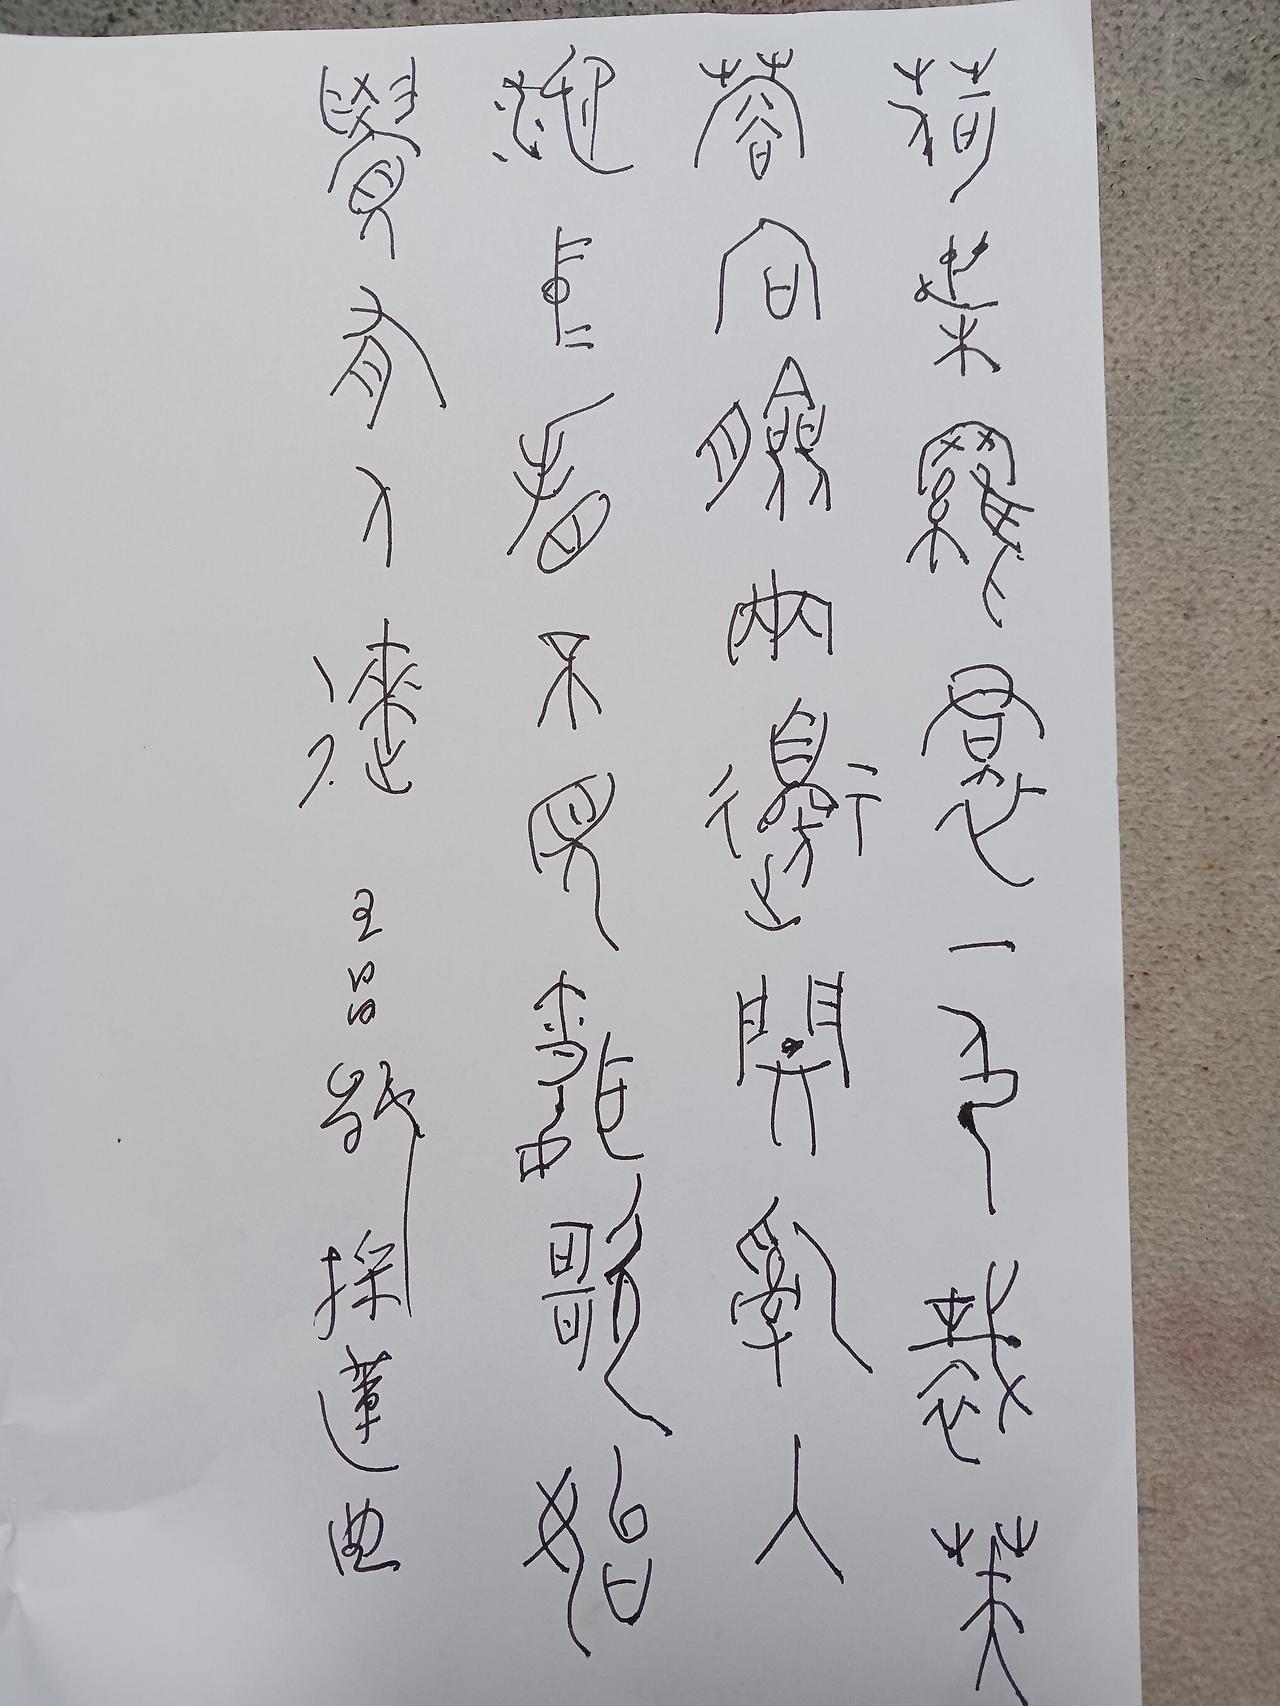 荷葉羅裙一色裁芙
蓉向臉兩邊開亂入
池中看不見聞歌始
覺有人來 王昌齡採蓮曲